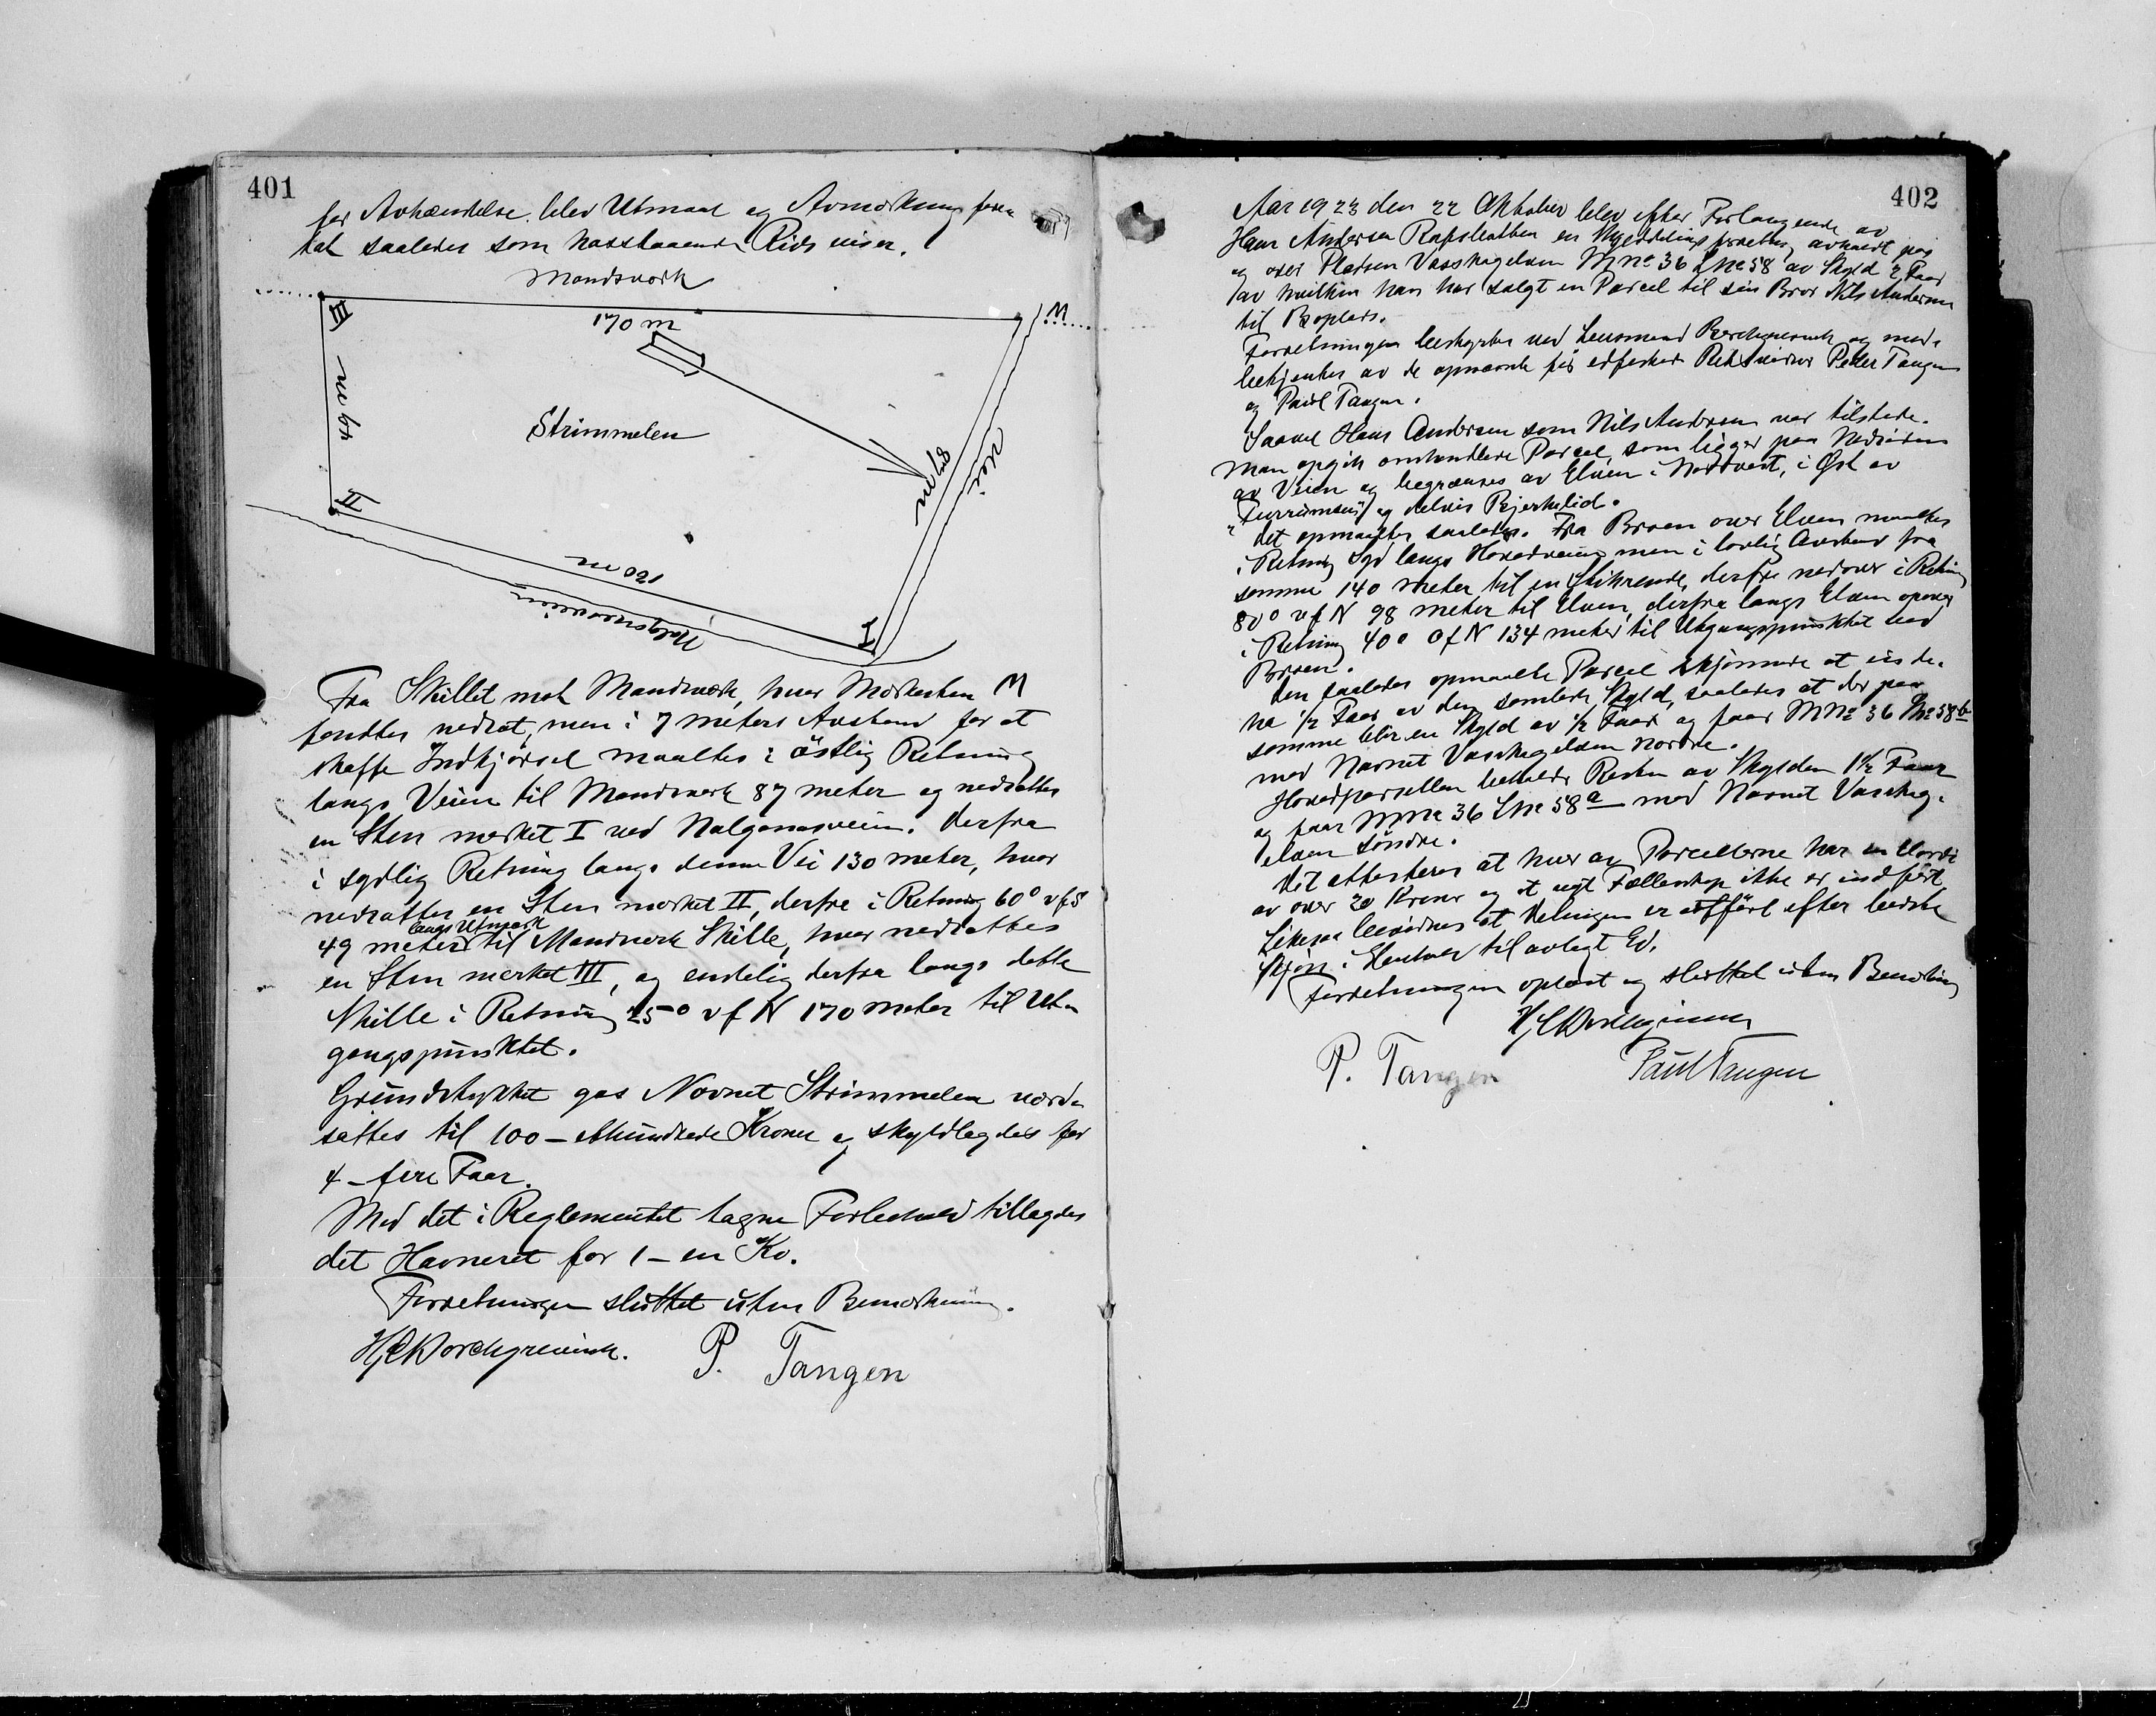 401
for Avhændelse. blev Utmaal og Avmerkning fore-
tat saaledes som hosstaaende Rids viser.
Mandsverk
III
170 m
M
49 m
Strimmelen
87 m
Vei
II
130 m
Nalganesveien
I
Fra Skillet mot Mandsverk, hvor Merkesten M
fandtes nedsat, men i 7 meters Avstand for at
skaffe Indkjørsel maaltes i östlig Retning
langs Veien til Mandsverk 87 meter og nedsattes
en Sten merket I ved Nalganesveien. Derfra
i sydlig Retning langs denne Vei 130 meter, hvor
nedsattes en Sten merket II, derfra i Retning 60° v f S
langs Utmark
49 meter til Mandsverk Skille, hvor nedsattes
en Sten merket III, og endelig derfra langs dette
Skille i Retning 25° v f N 170 meter til Ut-
gangspunktet.
Grundstykket gas Navnet Strimmelen værd-
sattes til 100 - ethundrede Kroner og skyldlagdes for
4 - fire Faar.
Med det i Reglementet tagne Forbehold tillagdes
det Havneret for 1 - en Ko.
Forretningen sluttet uten Bemerkning.
HjCBorchgrevink. P. Tangen
402
Aar 1923 den 22 Oktober blev efter Forlangende av
Hans Andersen en Skylddelingsforretning avholdt paa
og over Pladsen Vasshagelven MNo 36 LNo 58 av Skyld 2 Faar
av hvilken han har solgt en Parcel til sin Bror Nils Andersen
til Boplads.
Forretningen bestyrtes ved Lensmand Borchgrevink og med-
betjentes av de opnævnte før edfestede Retsvidner Peder Tangen
og Paul Tangen.
Saavel Hans Andersen som Nils Andersen var tilstede.
Man opgik omhandlede Parcel, som ligger paa Nedsiden
av Veien og begrænses av Elven i Nordvest, i Øst av
"Furrumoen" og delvis Bjerkelid.
Det opmaaltes saaledes. Fra Broen over Elven maaltes
i Retning Syd langs Hovedveien men i lovlig Avstand fra
samme 140 meter til en Stikrende, derfra nedover i Retning
80° v f N 98 meter til Elven, derfra langs Elven opover
i Retning 40° O f N 134 meter til Utgangspunktet ved
Broen.
Den saaledes opmaalte Parcel skjønnedes at
ha 1/2 Faar av den samlede Skyld, saaledes at der paa
samme blir en Skyld av 1/2 Faar og faar MNo 36 LNo 58 b
med Navnet Vasshagelven nordre.
Hovedparsellen beholder Resten av Skylden 1 1/2 Faar
og faar MNo 36 LNo 58 a med Navnet Vasshag-
elven søndre.
Det attesteres at hver av Parcellerne har en Værdi
av over 20 Kroner og at nyt Fællesskap ikke er indført
Likesaa bevidnes at Delingen er utført efter bedste
Skjøn i Henhold til avlagt Ed.
Forretningen oplæst og sluttet uten Bemerkning
HjCBorchgrevink
P. Tangen Paul Tangen